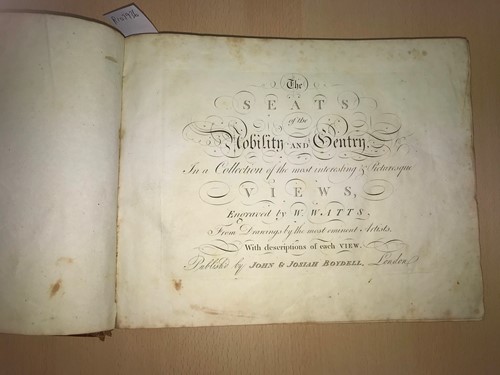 The
SEATS
of the
Nobility AND Gentry,
In a Collection of the most interesting & Picturesque
VIEWS,
Engraved by W. WATTS.
From Drawings by the most eminent Artists.
With descriptions of each VIEW.
Publish'd by JOHN & JOSIAH BOYDELL, London,